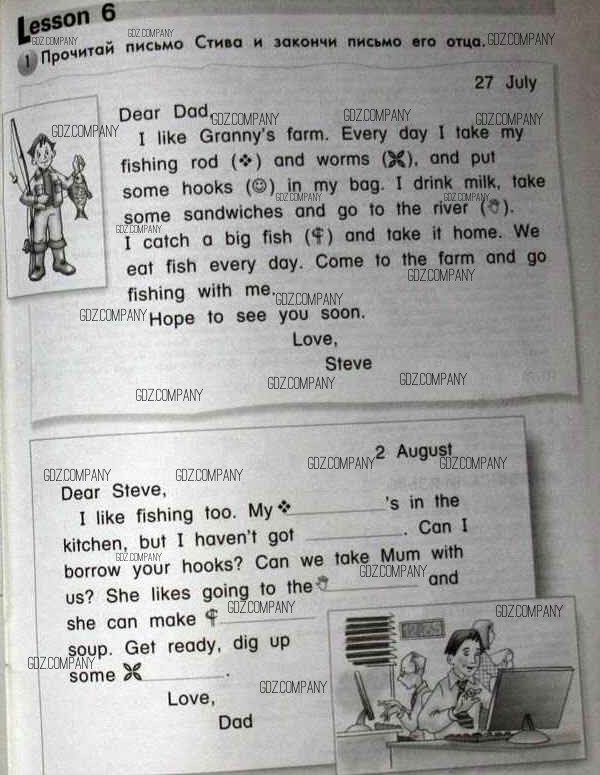 Lesson 6
GDZ.COMPANY GDZ.COMPANY
1 Прочитай письмо Стива и закончи письмо его отца. GDZ.COMPANY
27 July
Dear Dad, GDZ.COMPANY GDZ.COMPANY GDZ.COMPANY
GDZ.COMPANY
I like Granny's farm. Every day I take my
fishing rod (❖) and worms (✂), and put
some hooks (☺) in my bag. I drink milk, take
GDZ.COMPANY GDZ.COMPANY
some sandwiches and go to the river (✋).
GDZ.COMPANY
I catch a big fish (¶) and take it home. We
eat fish every day. Come to the farm and go
GDZ.COMPANY
fishing with me.
GDZ.COMPANY
GDZ.COMPANY
Hope to see you soon.
Love,
Steve
GDZ.COMPANY GDZ.COMPANY
GDZ.COMPANY
2 August
GDZ.COMPANY GDZ.COMPANY
GDZ.COMPANY GDZ.COMPANY
Dear Steve,
I like fishing too. My ❖ ________'s in the
kitchen, but I haven't got ________. Can I
GDZ.COMPANY
borrow your hooks? Can we take Mum with
GDZ.COMPANY
us? She likes going to the ✋ ________ and
GDZ.COMPANY GDZ.COMPANY
she can make ¶ ________
soup. Get ready, dig up
GDZ.COMPANY
some ✂ ________.
GDZ.COMPANY
Love,
Dad